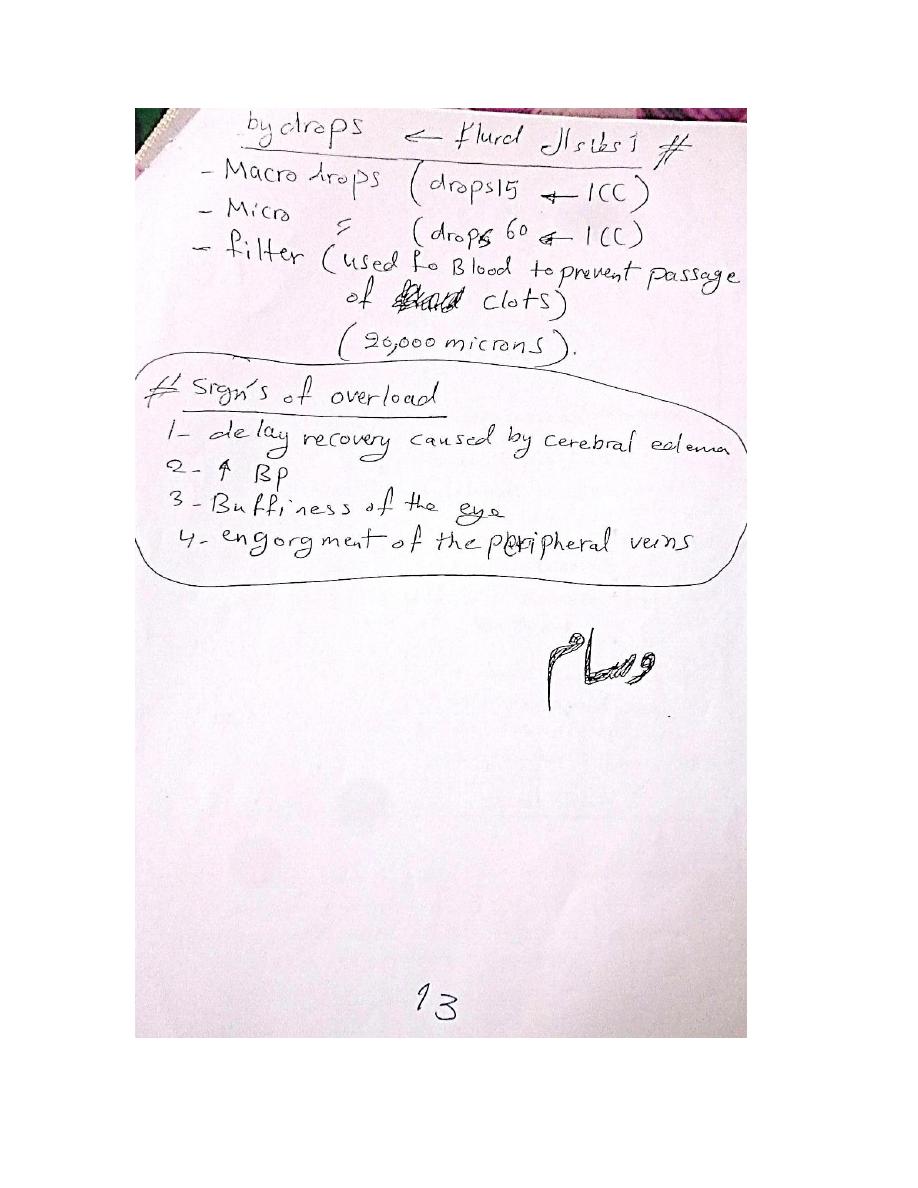 # اعطاء الـ fluid ← by drops
- Macro drops (drops15 ← 1CC)
- Micro = (drops 60 ← 1CC)
- filter (used fo Blood to prevent passage
of clots)
(20,000 microns).
# Sign's of overload
1- delay recovery caused by cerebral edema
2- ↑ BP
3- Buffiness of the eye
4- engorgment of the peripheral veins
وسام
13